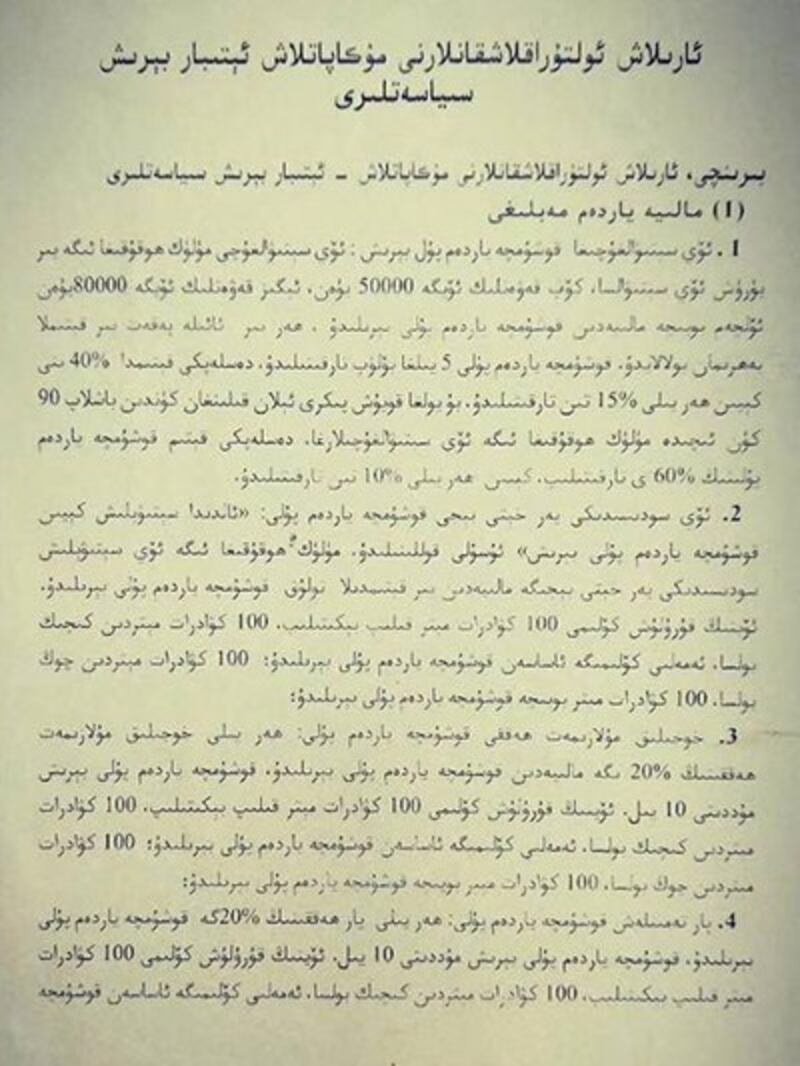 ئارىلاش ئولتۇراقلاشقانلارنى مۇكاپاتلاش ئېتىبار بېرىش
سىياسەتلىرى
بىرىنچى، ئارىلاش ئولتۇراقلاشقانلارنى مۇكاپاتلاش – ئېتىبار بېرىش سىياسەتلىرى
(1) مالىيە ياردەم مەبلىغى
1 . ئۆي سېتىۋالغۇچىغا قوشۇمچە ياردەم پۇل بېرىش : ئۆي سېتىۋالغۇچى مۈلۈك ھوقۇقىغا ئىگە بىر
يۈرۈش ئۆي سېتىۋالسا، كۆپ قەۋەتلىك ئۆيگە 50000 يۈەن، ئېگىز قەۋەتلىك ئۆيگە 80000يۈەن
ئۆلچەم بويىچە مالىيەدىن قوشۇمچە ياردەم پۇلى بېرىلىدۇ ، ھەر بىر ئائىلە پەقەت بىر قېتىملا
بەھرىمان بولالايدۇ. قوشۇمچە ياردەم پۇلى 5 يىلغا بۆلۈپ تارقىتىلىدۇ، دەسلەپكى قېتىمدا %40 نى
كېيىن ھەر يىلى %15 تىن تارقىتىلىدۇ. بۇ يولغا قويۇش پىكرى ئېلان قىلىنغان كۈندىن باشلاپ 90
كۈن ئىچىدە مۈلۈك ھوقۇقىغا ئىگە ئۆي سېتىۋالغۇچىلارغا، دەسلەپكى قېتىم قوشۇمچە ياردەم
پۇلىنىڭ %60 ى تارقىتىلىپ، كېيىن ھەر يىلى %10 تىن تارقىتىلىدۇ.
2. ئۆي سودىسىدىكى پەر خېتى بېجى قوشۇمچە ياردەم پۇلى: «ئالدىدا سېتىۋېلىش كېيىن
قوشۇمچە ياردەم پۇلى بېرىش» ئۇسۇلى قوللىنىلىدۇ. مۈلۈك ھوقۇقىغا ئىگە ئۆي سېتىۋېلىش
سودىسىدىكى پەر خېتى بېجىگە مالىيەدىن بىر قېتىمدىلا تولۇق قوشۇمچە ياردەم پۇلى بېرىلىدۇ.
ئۆينىڭ قۇرۇلۇش كۆلىمى 100 كۋادرات مېتىر قىلىپ بېكىتىلىپ، 100 كۋادرات مېتىردىن كىچىك
بولسا، ئەمەلىي كۆلىمىگە ئاساسەن قوشۇمچە ياردەم پۇلى بېرىلىدۇ؛ 100 كۋادرات مېتىردىن چوڭ
بولسا، 100 كۋادرات مېتىر بويىچە قوشۇمچە ياردەم پۇلى بېرىلىدۇ؛
3. خوجىلىق مۇلازىمەت ھەققى قوشۇمچە ياردەم پۇلى: ھەر يىلى خوجىلىق مۇلازىمەت
ھەققىنىڭ %20 ىگە مالىيەدىن قوشۇمچە ياردەم پۇلى بېرىلىدۇ، قوشۇمچە ياردەم پۇلى بېرىش
مۇددىتى 10 يىل. ئۆينىڭ قۇرۇلۇش كۆلىمى 100 كۋادرات مېتىر قىلىپ بېكىتىلىپ، 100 كۋادرات
مېتىردىن كىچىك بولسا، ئەمەلىي كۆلىمىگە ئاساسەن قوشۇمچە ياردەم پۇلى بېرىلىدۇ؛ 100 كۋادرات
مېتىردىن چوڭ بولسا، 100 كۋادرات مېتىر بويىچە قوشۇمچە ياردەم پۇلى بېرىلىدۇ؛
4. پار تەمىنلەش قوشۇمچە ياردەم پۇلى: ھەر يىلى پار ھەققىنىڭ %20گە قوشۇمچە ياردەم پۇلى
بېرىلىدۇ، قوشۇمچە ياردەم پۇلى بېرىش مۇددىتى 10 يىل. ئۆينىڭ قۇرۇلۇش كۆلىمى 100 كۋادرات
مېتىر قىلىپ بېكىتىلىپ، 100 كۋادرات مېتىردىن كىچىك بولسا، ئەمەلىي كۆلىمىگە ئاساسەن قوشۇمچە